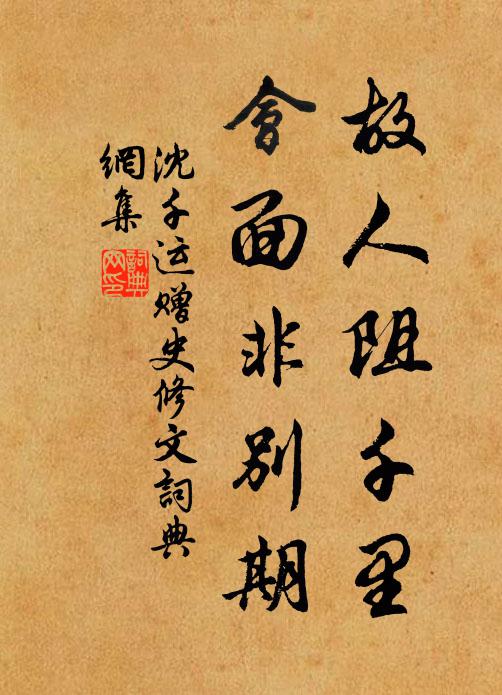 故人阻千里
會面非別期
沈千运赠史修文詞典
網集
詞典
网印